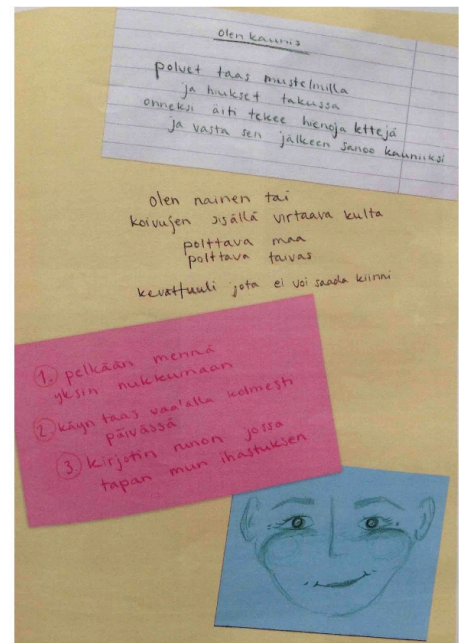 olen kaunis
polvet taas mustelmilla
ja hiukset takussa
onneksi äiti tekee hienoja lettejä
ja vasta sen jälkeen sanoo kauniiksi
olen nainen tai
koivujen sisällä virtaava kulta
polttava maa
polttava taivas
kevättuuli jota ei voi saada kiinni
1. pelkään mennä
yksin nukkumaan
2. käyn taas vaa'alla kolmesti
päivässä
3 kirjotin runon jossa
tapan mun ihastuksen